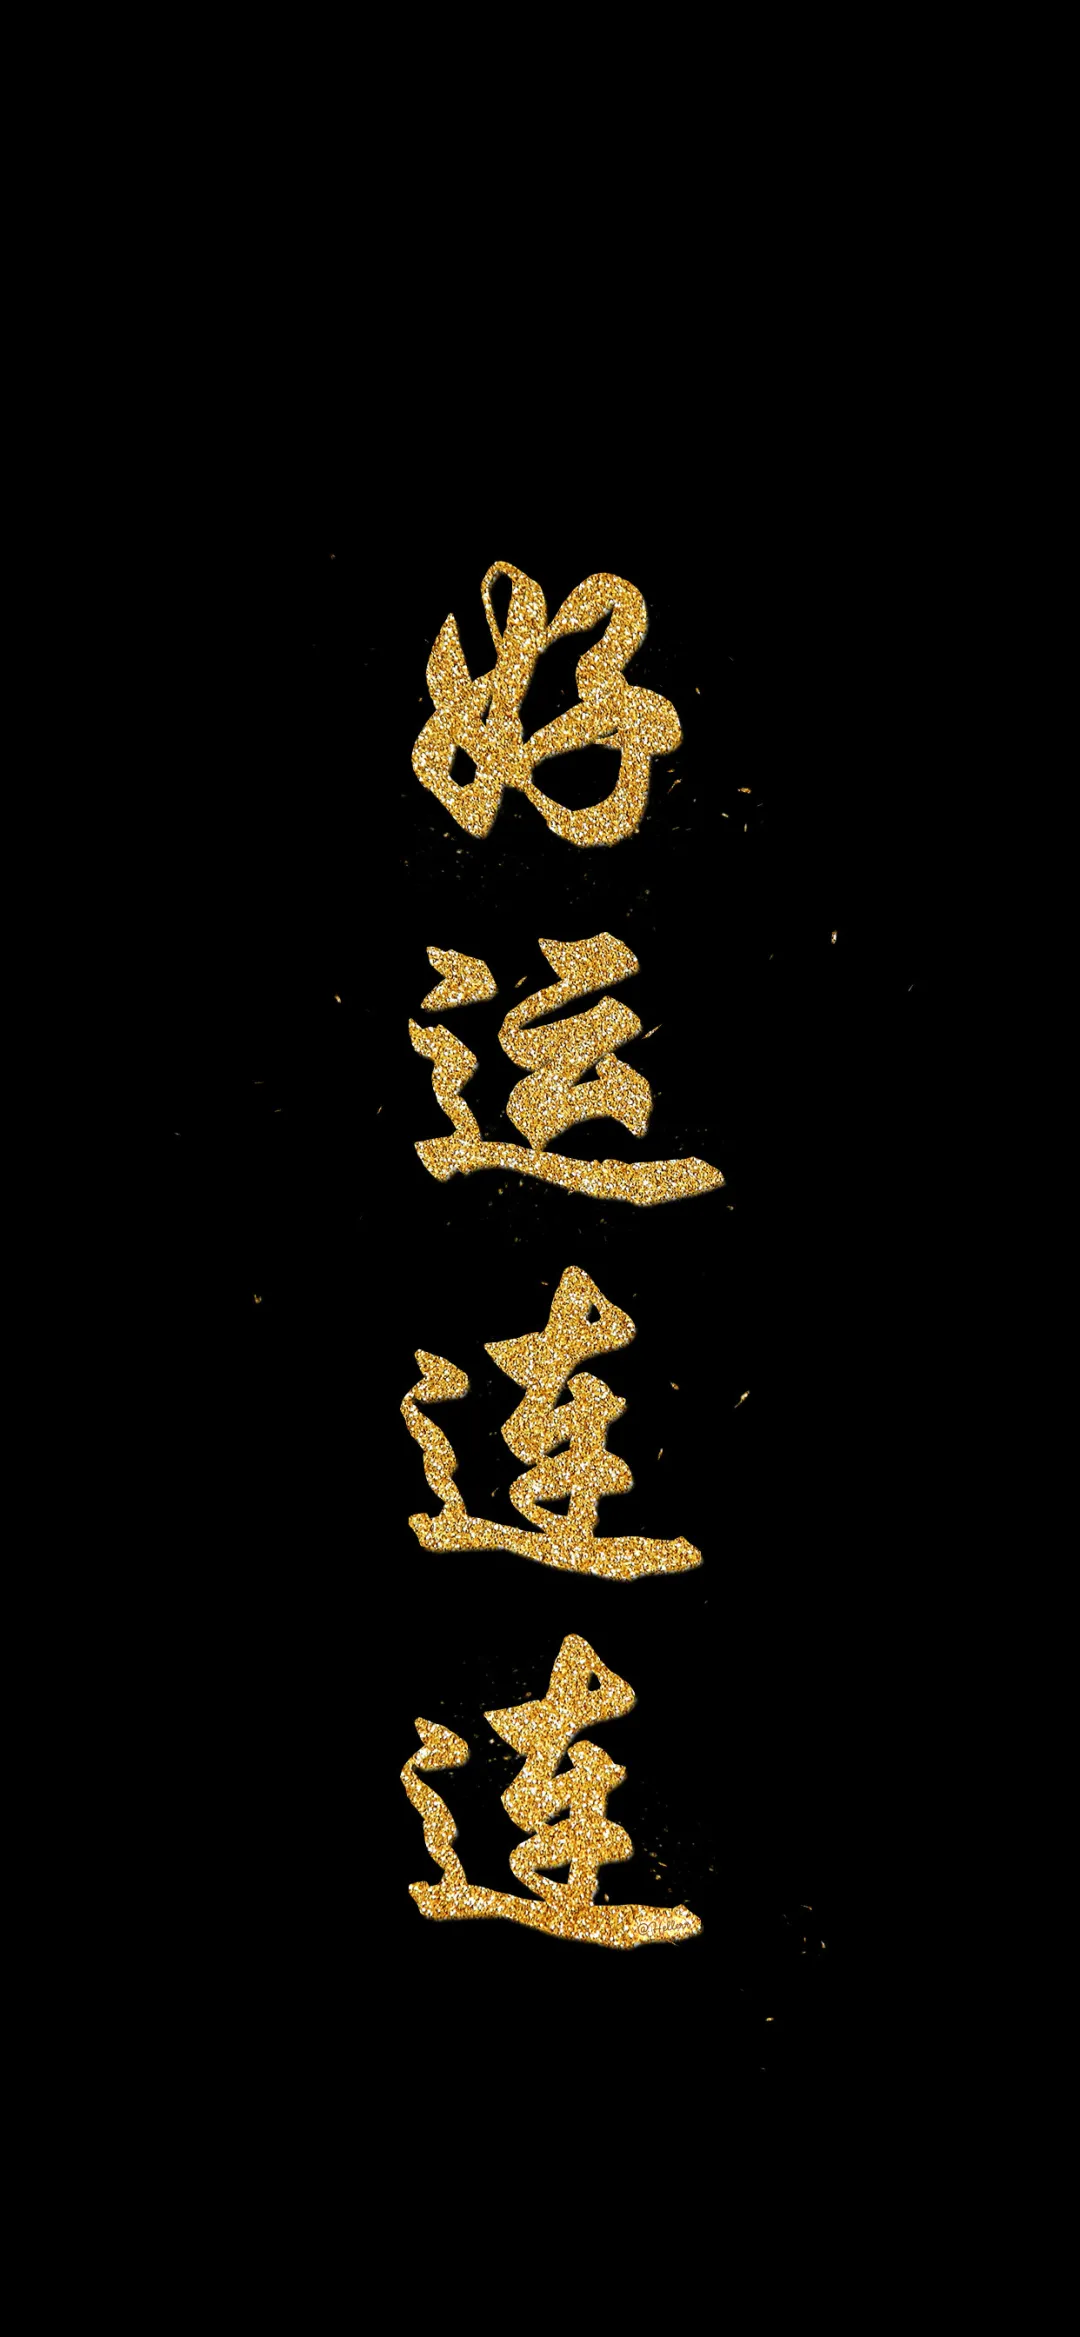 好运连连